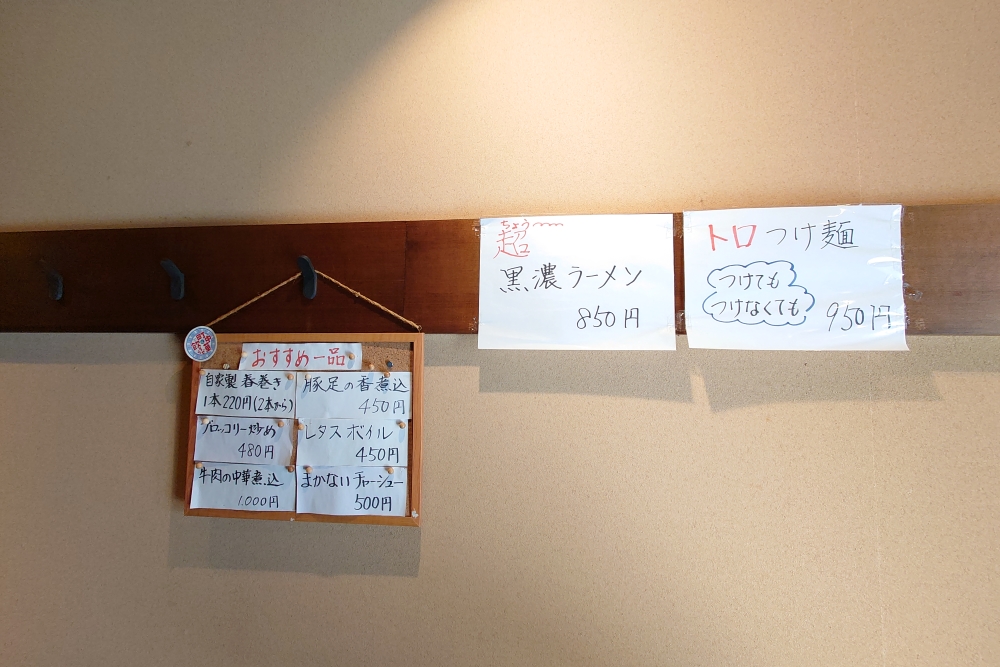 おすすめ一品
自家製 春巻き
1本220円(2本から)
豚足の香煮込
450円
ブロッコリー炒め
480円
レタスボイル
450円
牛肉の中華煮込
1.000円
まかないチャーシュー
500円
ちょう
超
黒濃ラーメン
850円
トロつけ麺
つけても
つけなくても
950円